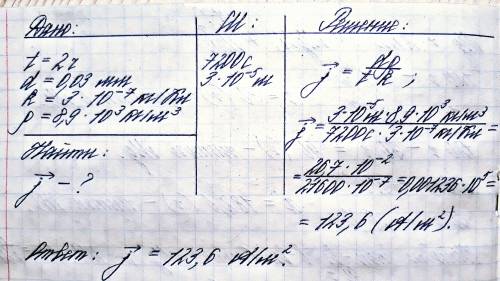 Дано:
t = 2ч
d = 0,03 мм
k = 3 · 10⁻⁷ кг/Кл
ρ = 8,9 · 10³ кг/м³
Найти:
j⃗ - ?
СИ:
7200с
3 · 10⁻⁵ м
Решение:
j⃗ = dρ/tk ;
j⃗ = 3·10⁻⁵·8,9·10³ кг/м³ / 7200с · 3·10⁻⁷ кг/Кл =
= 26,7 · 10⁻² / 21600 · 10⁻⁷ = 0,001236 · 10⁵ =
= 123,6 (А/м²).
Ответ: j⃗ = 123,6 А/м².